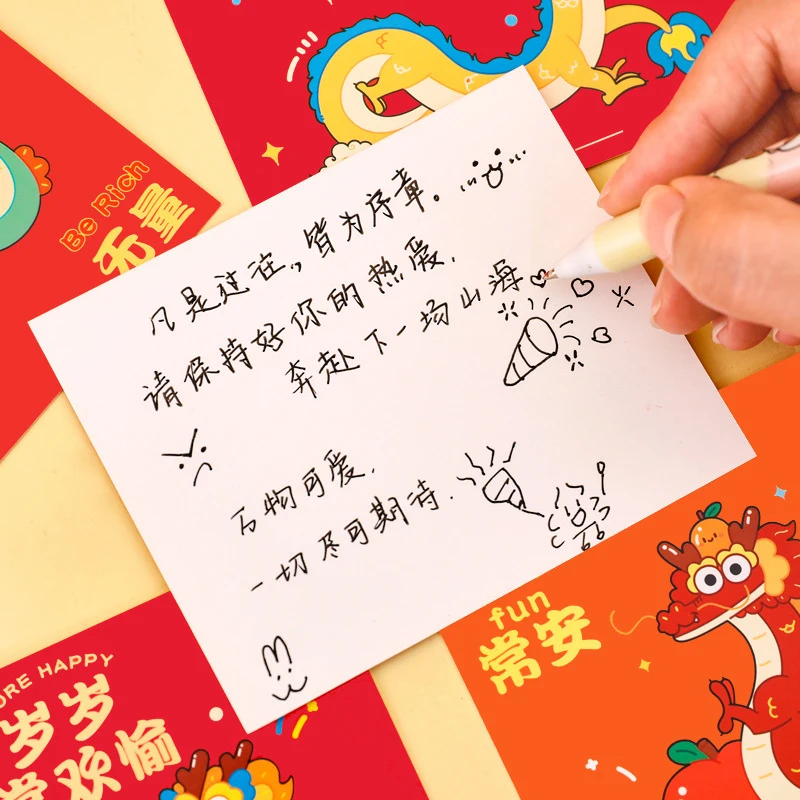 Be Rich
无量
凡是过往,皆为序章。
请保持好你的热爱,
奔赴下一场山海
万物可爱,
一切尽可期待.
fun
常安
ORE HAPPY
岁岁
常欢愉